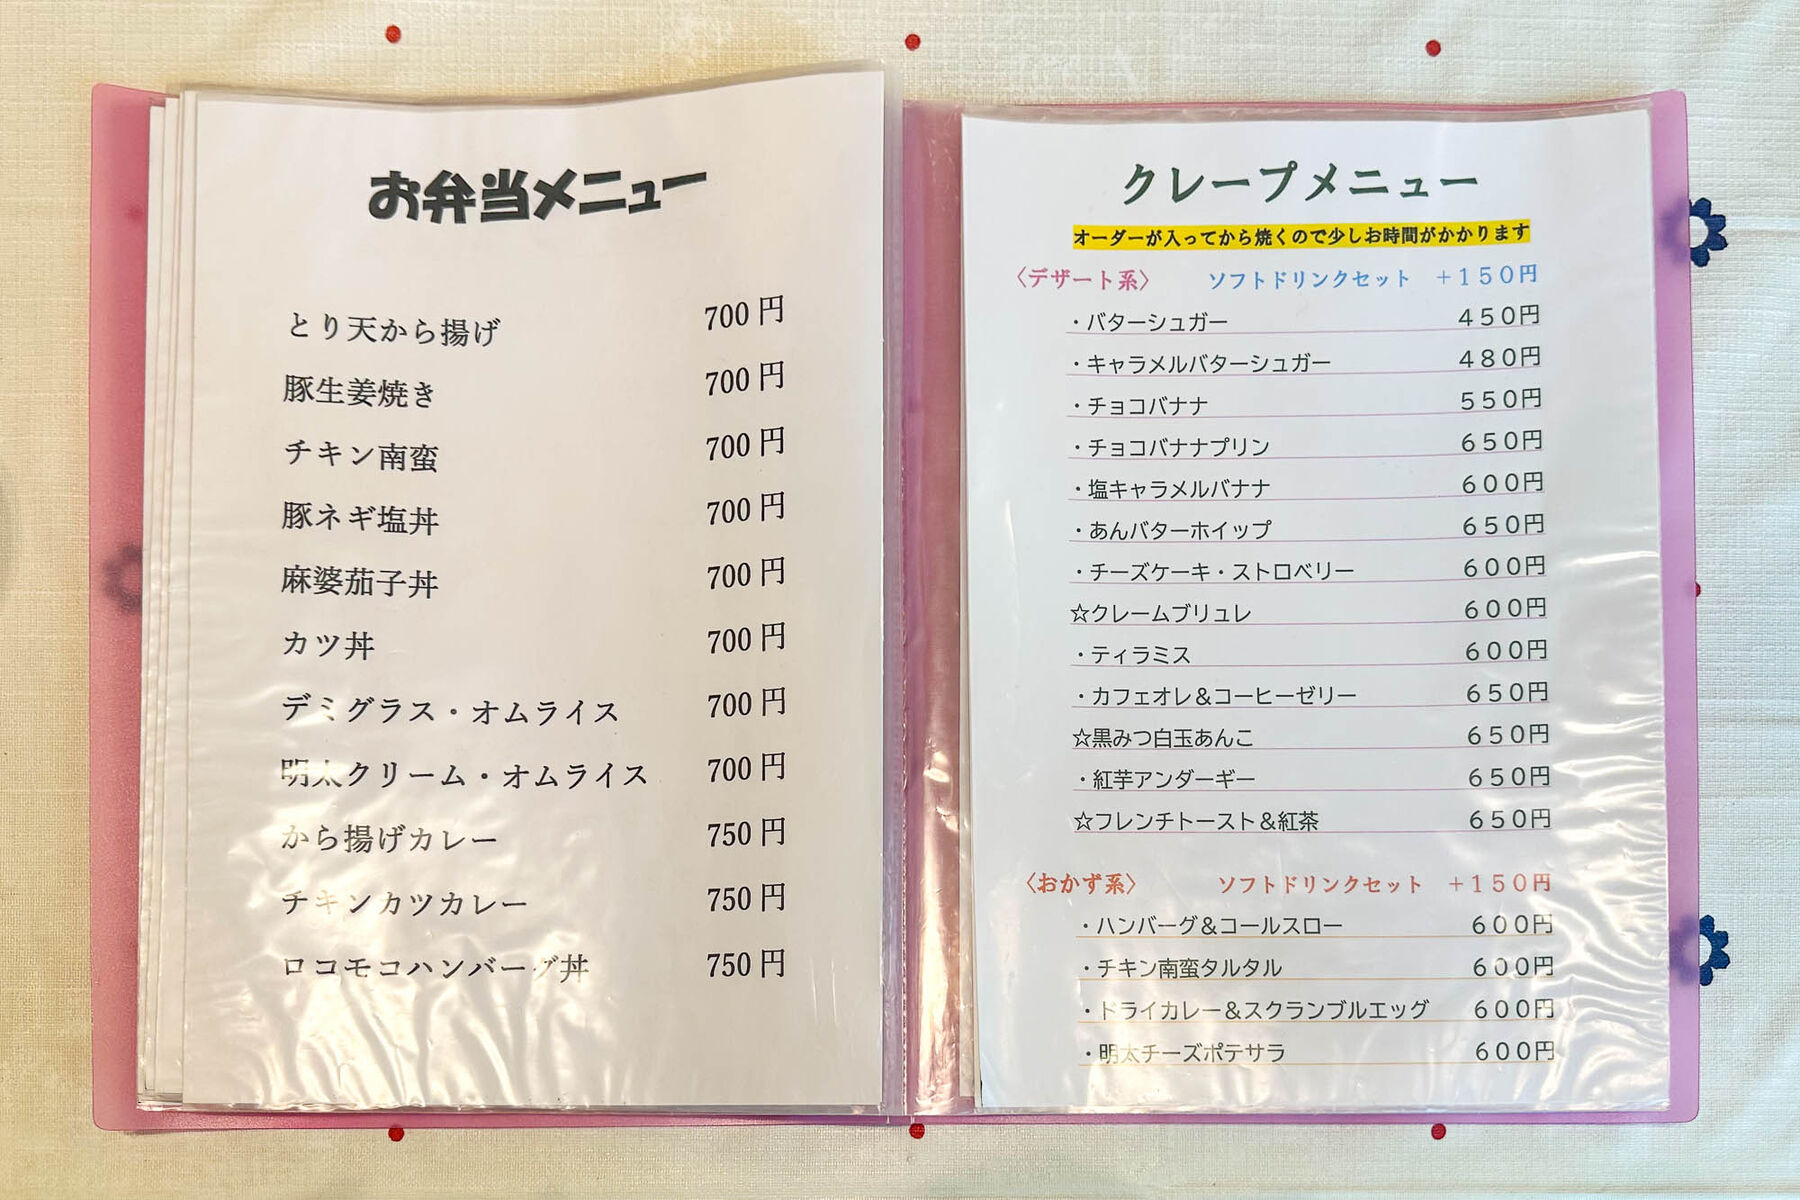 お弁当メニュー
とり天から揚げ 700円
豚生姜焼き 700円
チキン南蛮 700円
豚ネギ塩丼 700円
麻婆茄子丼 700円
カツ丼 700円
デミグラス・オムライス 700円
明太クリーム・オムライス 700円
から揚げカレー 750円
チキンカツカレー 750円
ロコモコハンバーグ丼 750円
クレープメニュー
オーダーが入ってから焼くので少しお時間がかかります
〈デザート系〉 ソフトドリンクセット +150円
・バターシュガー 450円
・キャラメルバターシュガー 480円
・チョコバナナ 550円
・チョコバナナプリン 650円
・塩キャラメルバナナ 600円
・あんバターホイップ 650円
・チーズケーキ・ストロベリー 600円
☆クレームブリュレ 600円
・ティラミス 600円
・カフェオレ&コーヒーゼリー 650円
☆黒みつ白玉あんこ 650円
・紅芋アンダーギー 650円
☆フレンチトースト&紅茶 650円
〈おかず系〉 ソフトドリンクセット +150円
・ハンバーグ&コールスロー 600円
・チキン南蛮タルタル 600円
・ドライカレー&スクランブルエッグ 600円
・明太チーズポテサラ 600円